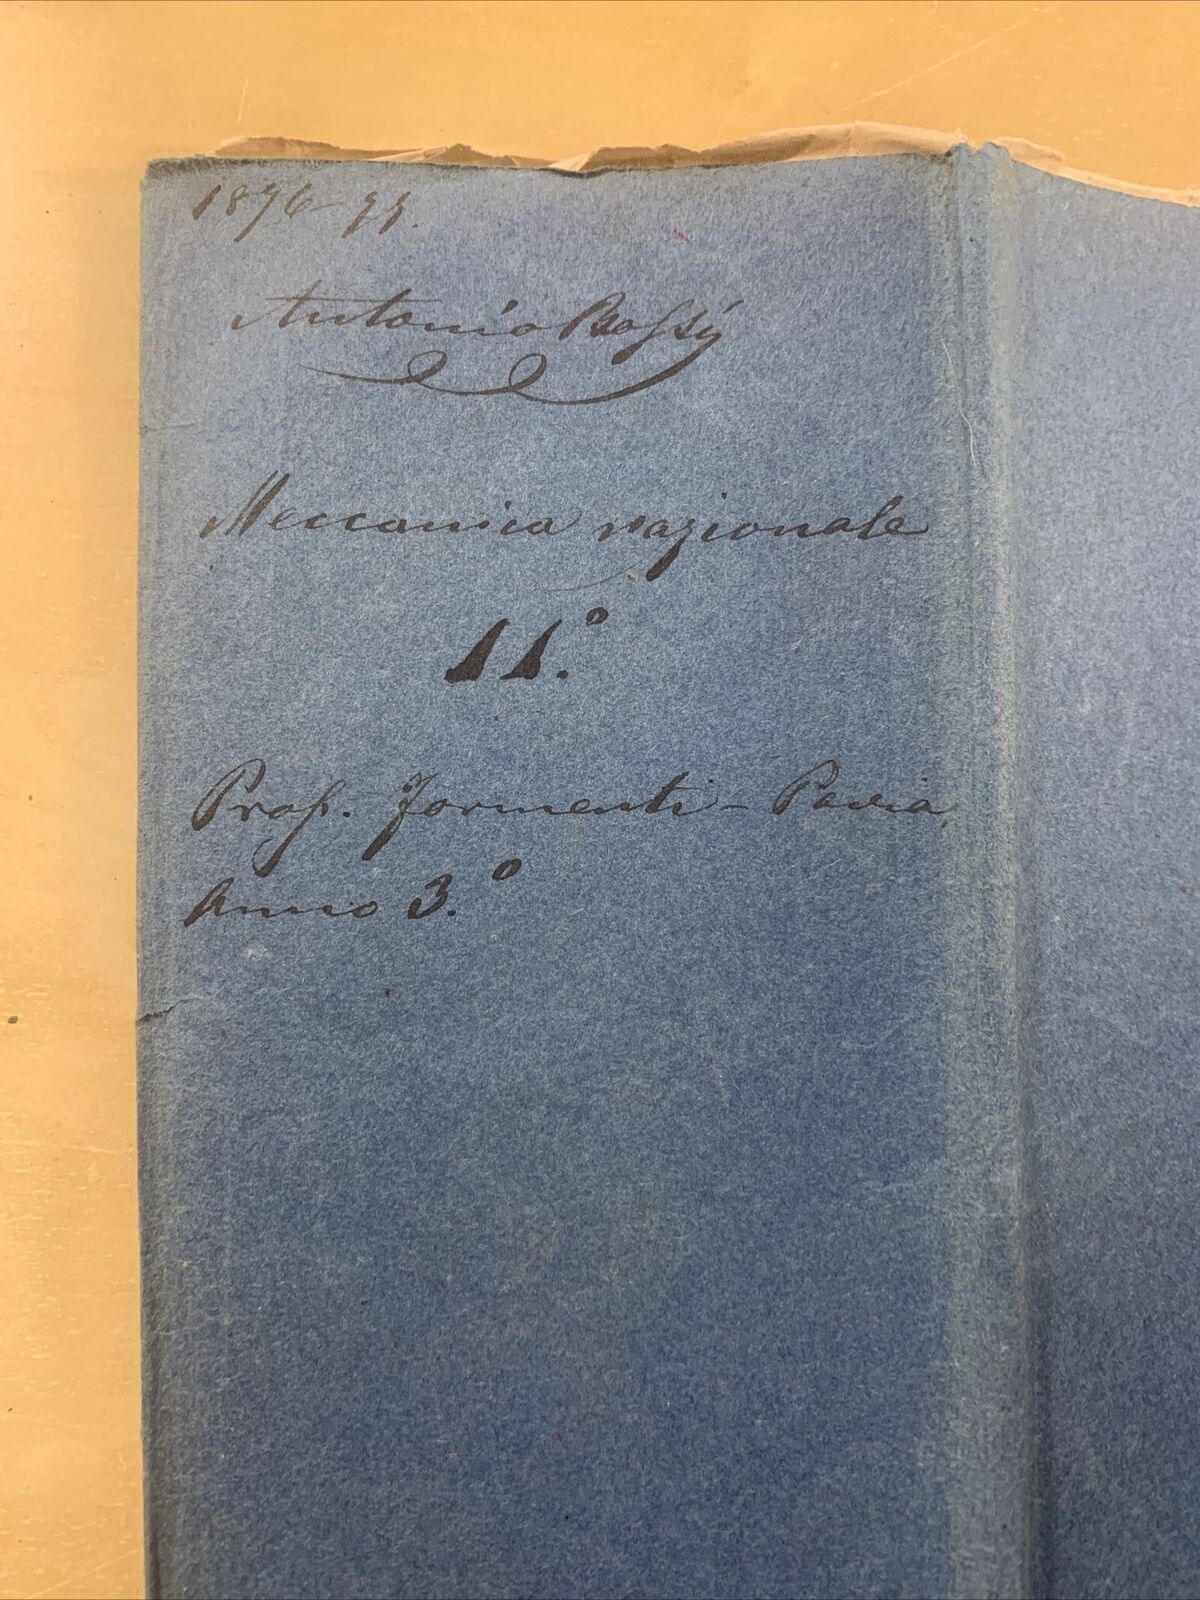 1876-77.
Antonio Bossi
Meccanica razionale
11.°
Prof. Formenti - Pavia
Anno 3.°